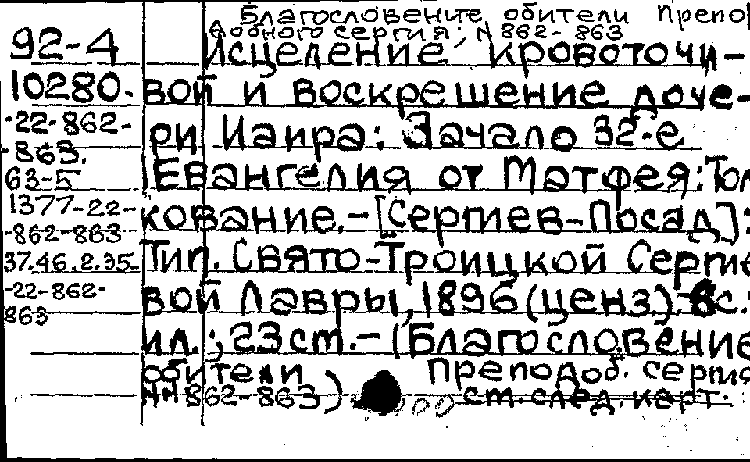 Благословение обители препо
добного сергия: N 862-863
92-4 Исцеление кровоточи-
10280- вой и воскрешение доче-
-22-862- ри Иаира: Зачало 32-е
-863. Евангелия от Матфея: Тол
63-5
1377-22- кование.-[Сергиев-Посад]:
-862-863
37.46.2.35 Тип. Свято-Троицкой Сергие
-22-862- вой Лавры, 1896 (ценз). 8с.:
863
ил.; 23 ст.-(Благословение
обители преподоб. сергия
NN 862-863) ст. след. карт.